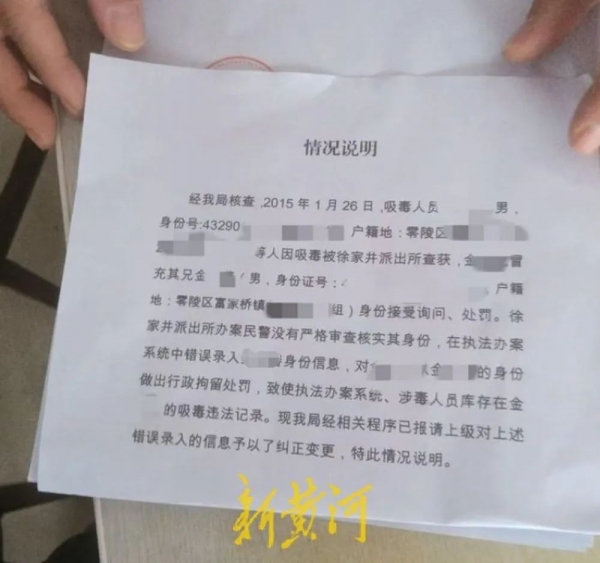 情况说明
经我局核查,2015年1月26日,吸毒人员 男,
身份号:43290 户籍地:零陵区
等人因吸毒被徐家井派出所查获,金 冒
充其兄金 (男,身份证号: 户籍
地:零陵区富家桥镇 组)身份接受询问、处罚。徐
家井派出所办案民警没有严格审查核实其身份,在执法办案
系统中错误录入 身份信息,对 金 的身份
做出行政拘留处罚,致使执法办案系统、涉毒人员库存在金
的吸毒违法记录。现我局经相关程序已报请上级对上述
错误录入的信息予以了纠正变更,特此情况说明。
新黄河